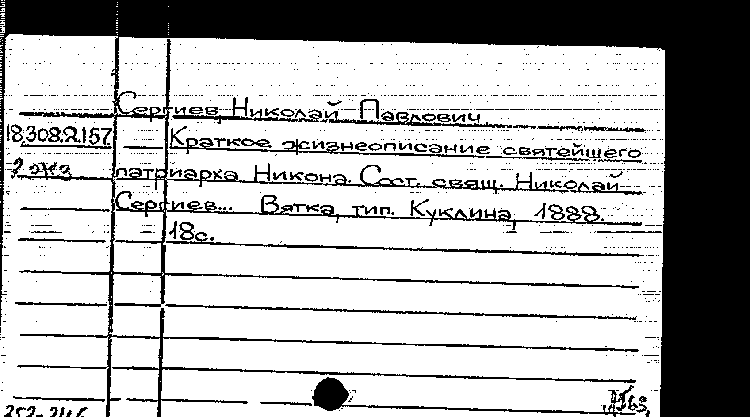 Сергиев, Николай Павлович
18.308.2.157 Краткое жизнеописание святейшего
2 экз патриарха Никона. Сост. свящ. Николай
Сергиев... Вятка, тип. Куклина, 1888.
18с.